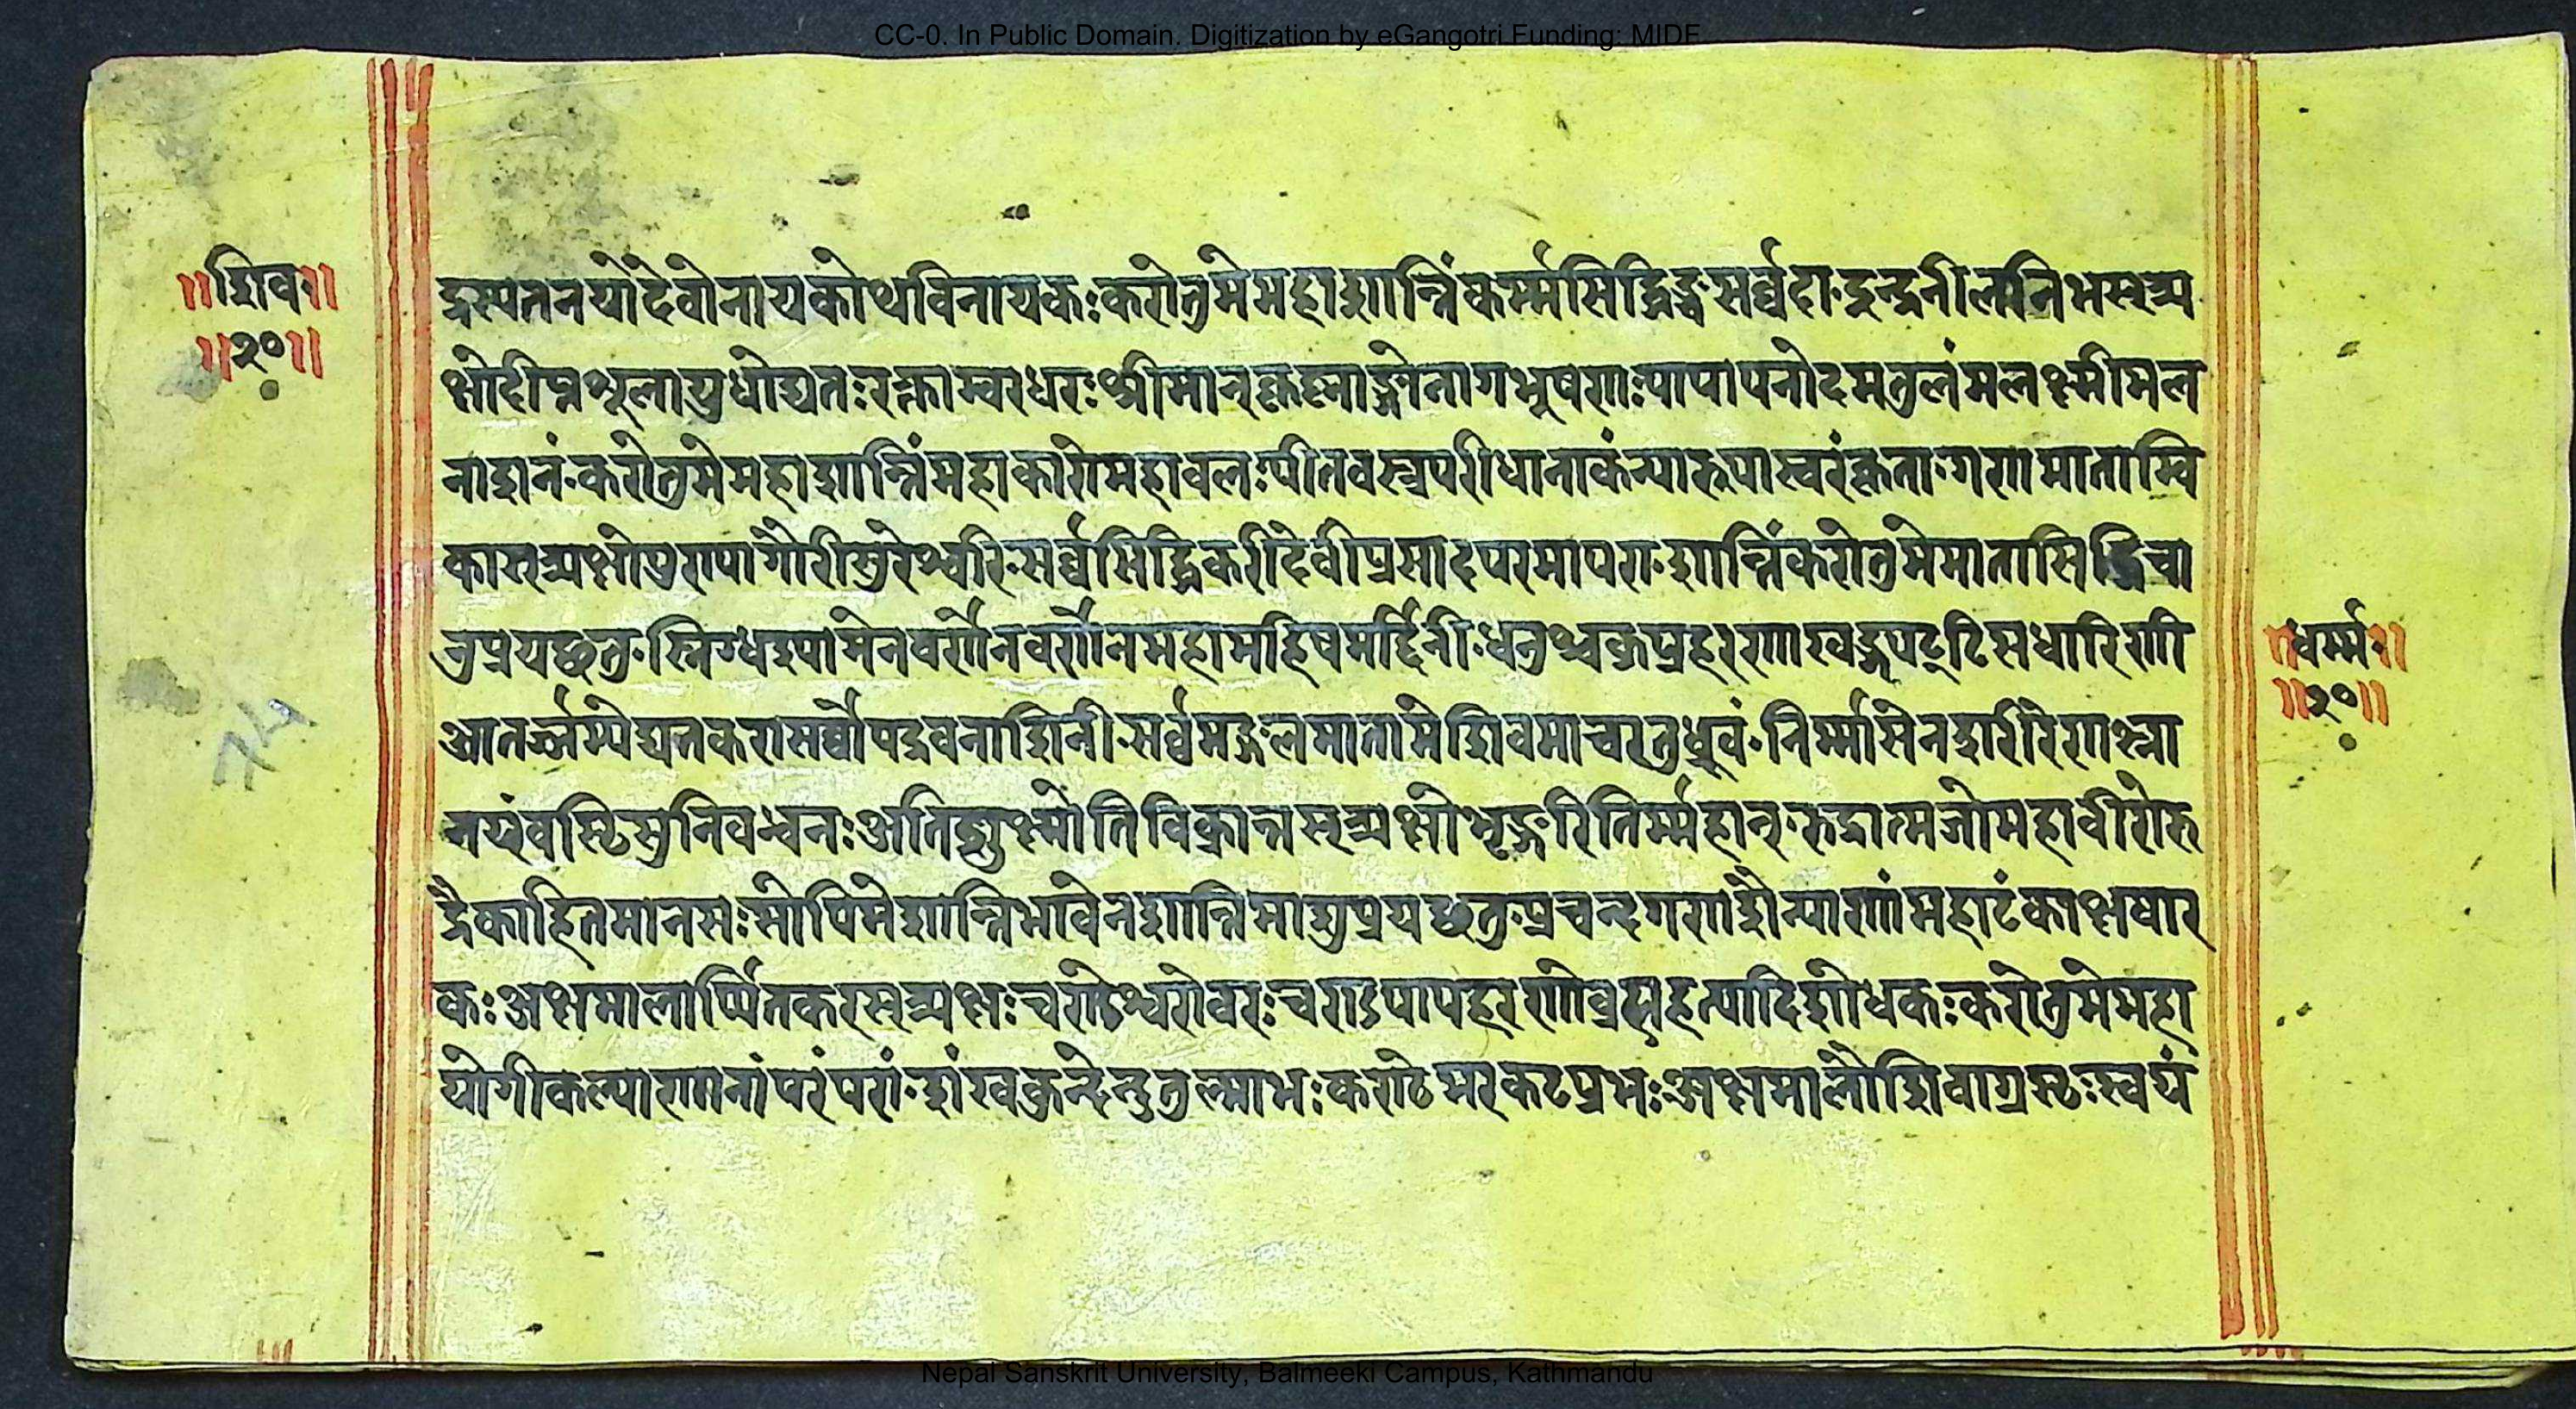 CC-0. In Public Domain. Digitization by eGangotri Funding: MIDF
॥शिव॥
॥२०॥
द्रस्पतनयोदेवोनायकोथविनायकः करोतुमेमहाशान्तिंकर्म्मसिद्धिञ्चसर्व्वदा इन्द्रनीलनिभस्त्र्य
क्षोदीप्तशूलायुधोद्यतः रक्ताम्बरधरः श्रीमान्कृष्णाङ्गोनागभूषणः पापापनोदमतुलंमलक्ष्मीमल
नाशनं करोतुमेमहाशान्तिंमहाकारोमहाबलः पीतवस्त्रपरीधानाकंन्यारुपास्वरंकृता गणमाताम्बि
कास्त्र्यक्षीपुरण्यागौरीसुरेश्वरि सर्व्वसिद्धिकरीदेवीप्रसादपरमापरा शान्तिंकरोतुमेमातासिद्धिचा
नुप्रयछतु स्निग्धश्यामेनवर्णेनवर्णेनमहामहिषमर्द्दिनी धनुश्चक्रप्रहरणाखड्गपट्टिसधारिणी
आतर्ज्जम्पेद्यतकरासर्व्वोपद्रवनाशिनी सर्व्वमङ्गलमातामेशिवमाचरतुध्रुवं निर्म्मासेनशरीरेणस्ना
नयंवस्टिसुनिवन्धनः अतिशुक्ष्मोतिविक्रान्तस्त्र्यक्षीभृङ्गरितिर्म्महान् रुद्रात्मजोमहावीरोरु
द्रैकाहितमानसः सोपिमेशान्तिभावेनशान्तिमाशुप्रयछतु प्रचन्दगणशैन्याणांमहाटंकाक्षधार
कः अक्षमालार्प्पितकरस्त्र्यक्षः चण्डेश्वरोवरः चण्डपापहरणोब्रह्महत्यादिशोधकः करोतुमेमहा
योगीकल्याणानांपरंपरां शंखकुन्देन्दुतुल्माभः कण्ठेमरकटप्रभः अक्षमालौशिवाग्रस्टः स्वयं
॥धर्म्म॥
॥२०॥
74
Nepal Sanskrit University, Balmeeki Campus, Kathmandu